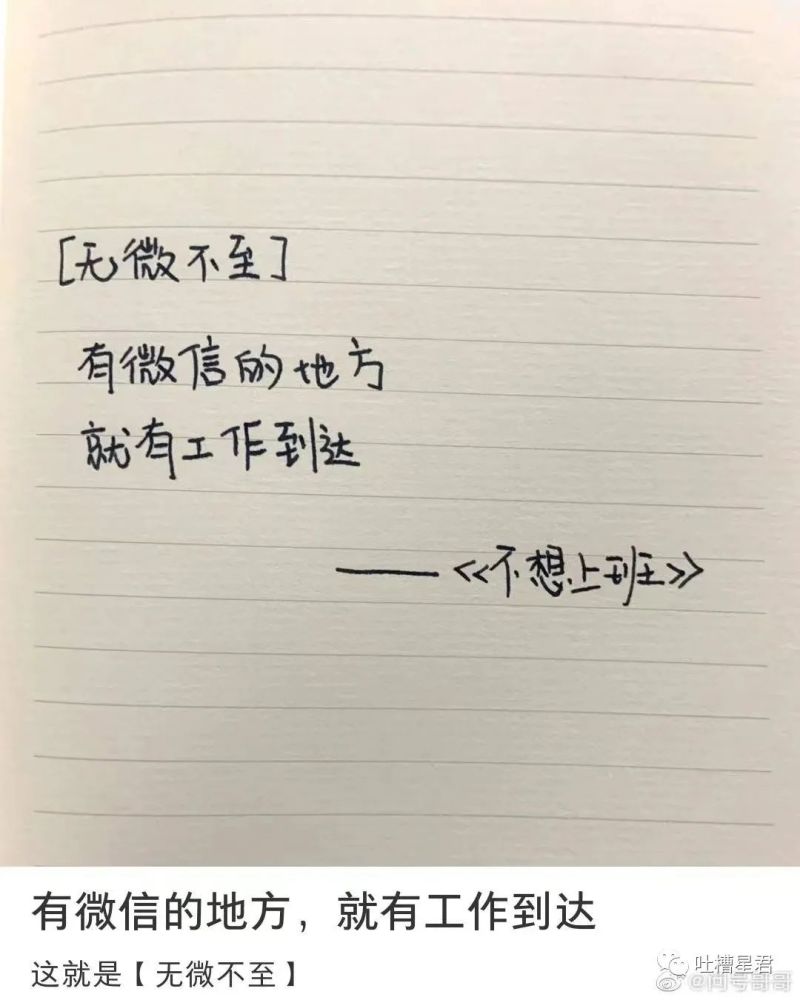 [无微不至]
有微信的地方
就有工作到达
——《不想上班》
有微信的地方，就有工作到达
这就是【无微不至】
吐槽星君
@问号哥哥